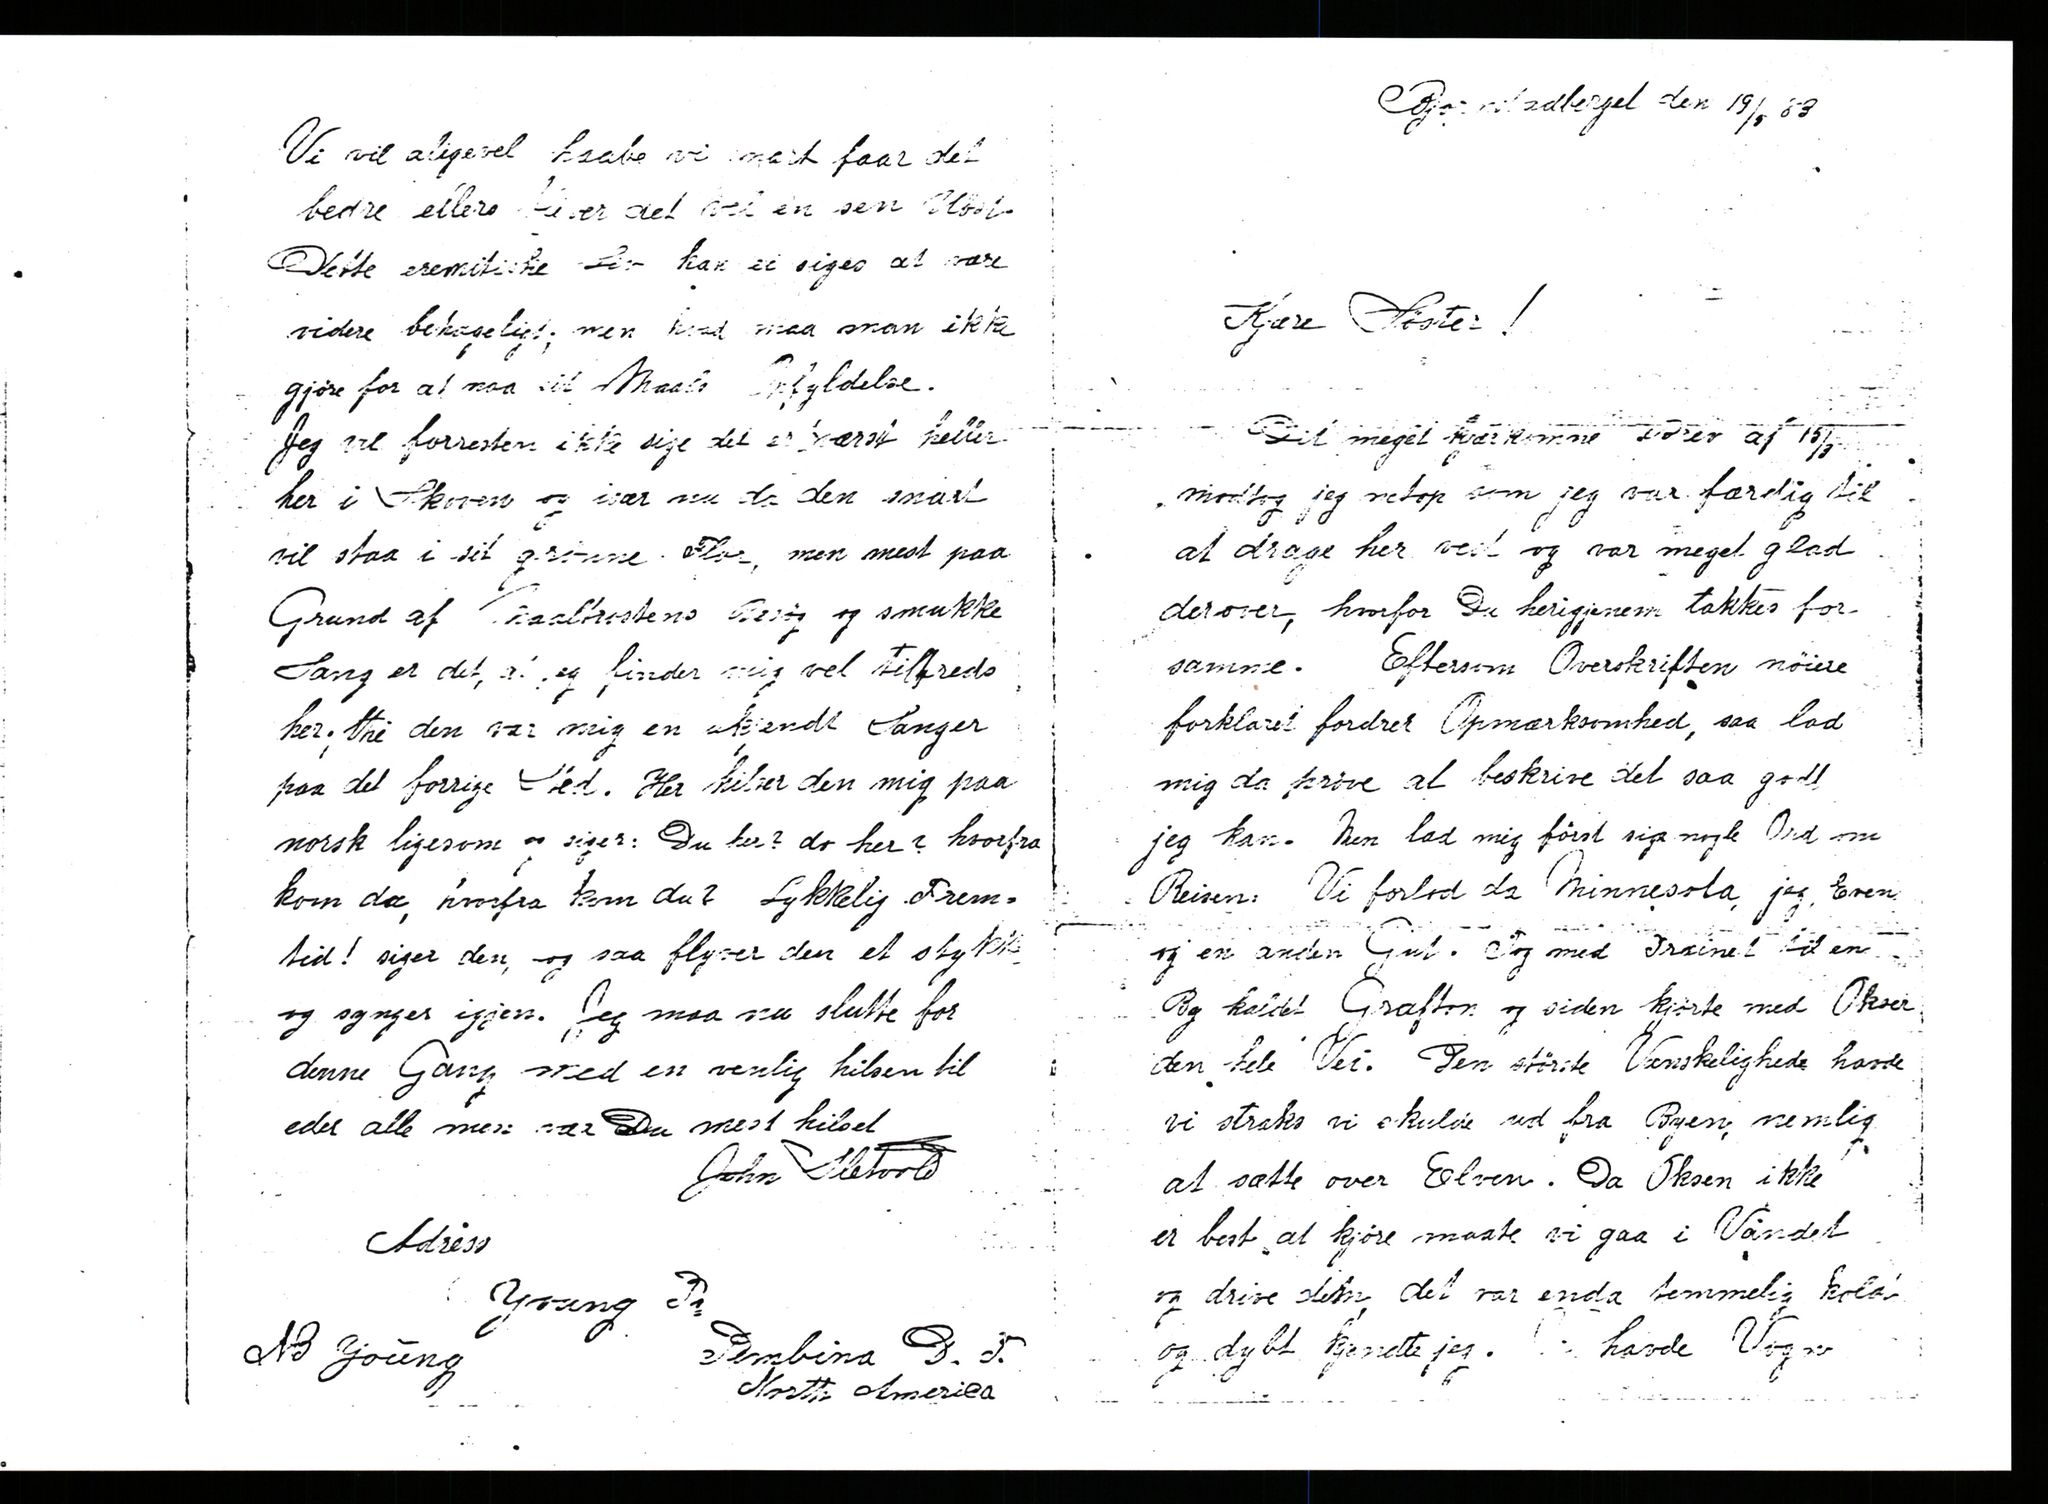 den 19/5 83
Kjære Söster!
Dit meget kjærkomne Brev af 15/3
modtog jeg netop som jeg var færdig til
at drage her ved og var meget glad
derover, hvorfor Du herigjenem takkes for
samme. Eftersom Overskriften nöiere
forklaret fordrer Opmærksomhed, saa lad
mig da pröve at beskrive det saa godt
jeg kan. Men lad mig först sige nogle Ord om
Reisen. Vi forlod da Minnesota, jeg, Even
og en anden Gut. Tog med Trainet til en
By kaldet Grafton og siden kjörte med Okser
den hele Vei. Den störste Vanskelighede havde
vi straks vi skulde ud fra Byen, nemlig
at sætte over Elven. Da Oksen ikke
er best at kjöre maate vi gaa i Vandet
og drive dem, det var enda temmelig kold
og dybt kjendte jeg. havde Vogn
Vi vil aligevel haabe vi snart faar det
bedre ellers bliver det vel en sen Höst.
Dette eremitiske Liv kan ei siges at være
videre behageligt, men hvad maa man ikke
gjöre for at naa sit Maals Opfyldelse.
Jeg vil forresten ikke sige det er værst heller
her i Skoven og især nu da den snart
vil staa i sit grönne Flor, men mest paa
Grund af Maaltrostens Besög og smukke
Sang er det, at jeg finder mig vel tilfreds
her, thi den var mig en ukjendt Sanger
paa det forrige Sted. Her hilser den mig paa
norsk ligesom og siger: Du her? du her? hvorfra
kom du, hvorfra kom du? Lykkelig Frem-
tid! siger den, og saa flyver den et stykke
og synger igjen. Jeg maa nu slutte for
denne Gang med en venlig hilsen til
eder alle men vær Du mest hilset
John Sletvold
Adress
Young Po
NB Young Pembina D. T.
North America